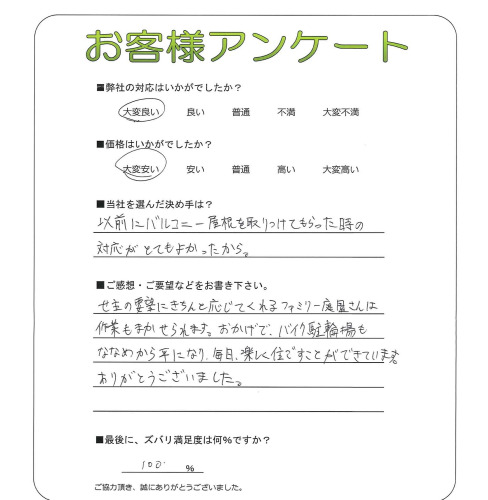 お客様アンケート
■弊社の対応はいかがでしたか？
大変良い 良い 普通 不満 大変不満
■価格はいかがでしたか？
大変安い 安い 普通 高い 大変高い
■当社を選んだ決め手は？
以前にバルコニー屋根を取りつけてもらった時の
対応がとてもよかったから。
■ご感想・ご要望などをお書き下さい。
せ主の要望にきちんと応じてくれるファミリー庭園さんは
作業もまかせられます。おかげで、バイク駐輪場も
ななめから平になり、毎日、楽しく住ですことができています。
ありがとうございました。
■最後に、ズバリ満足度は何%ですか？
100 %
ご協力頂き、誠にありがとうございました。